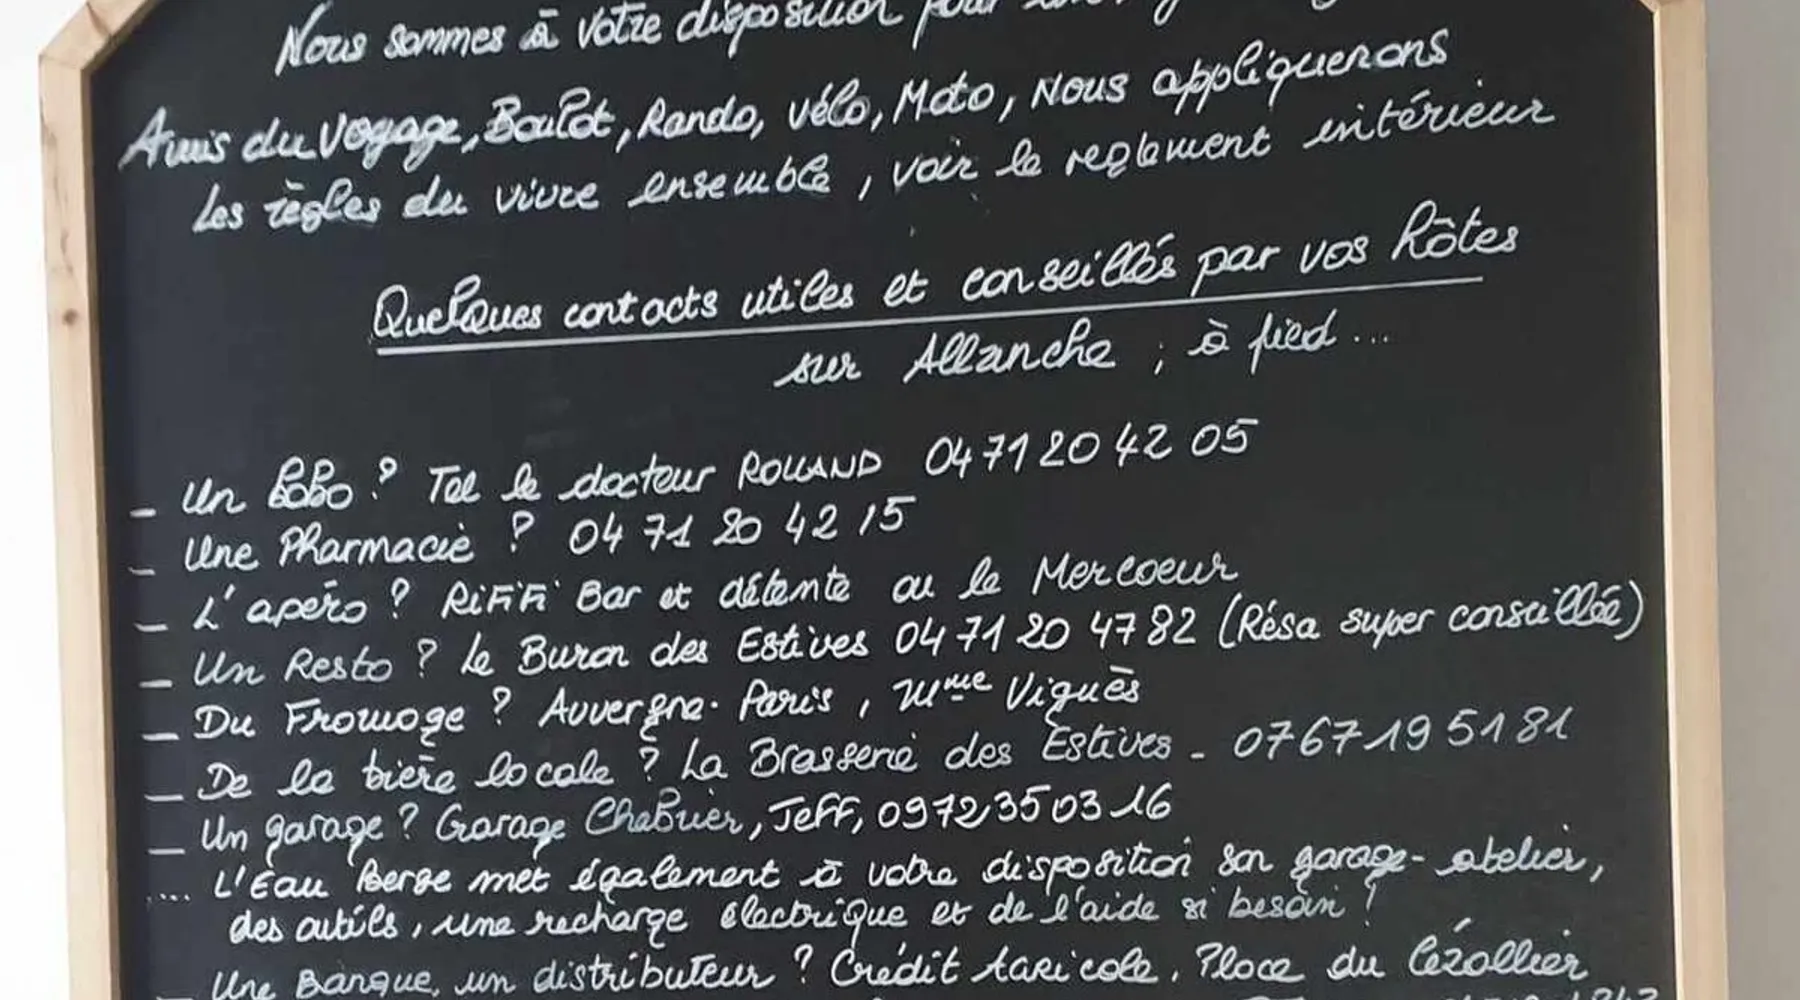 Nous sommes à votre disposition pour
Amis du voyage, Boulot, Rando, vélo, Moto, Nous appliquerons
Les règles du vivre ensemble, voir le reglement intérieur
Quelques contacts utiles et conseillés par vos hôtes
sur Allanche ; à pied...
_ Un BoBo ? Tel le docteur ROLLAND 04 71 20 42 05
_ Une Pharmacie ? 04 71 20 42 15
_ L'apéro ? RiFiFi Bar et détente ou le Mercoeur
_ Un Resto ? Le Buron des Estives 04 71 20 47 82 (Résa super conseillée)
_ Du Fromage ? Auvergne-Paris, Mme Viguès
_ De la bière locale ? La Brasserie des Estives - 07 67 19 51 81
_ Un garage ? Garage Chabrier, Jeff, 09 72 35 03 16
.... L'Eau Berge met également à votre disposition son garage-atelier,
des outils, une recharge électrique et de l'aide si besoin !
_ Une Banque, un distributeur ? Crédit Agricole, Place du Cézallier